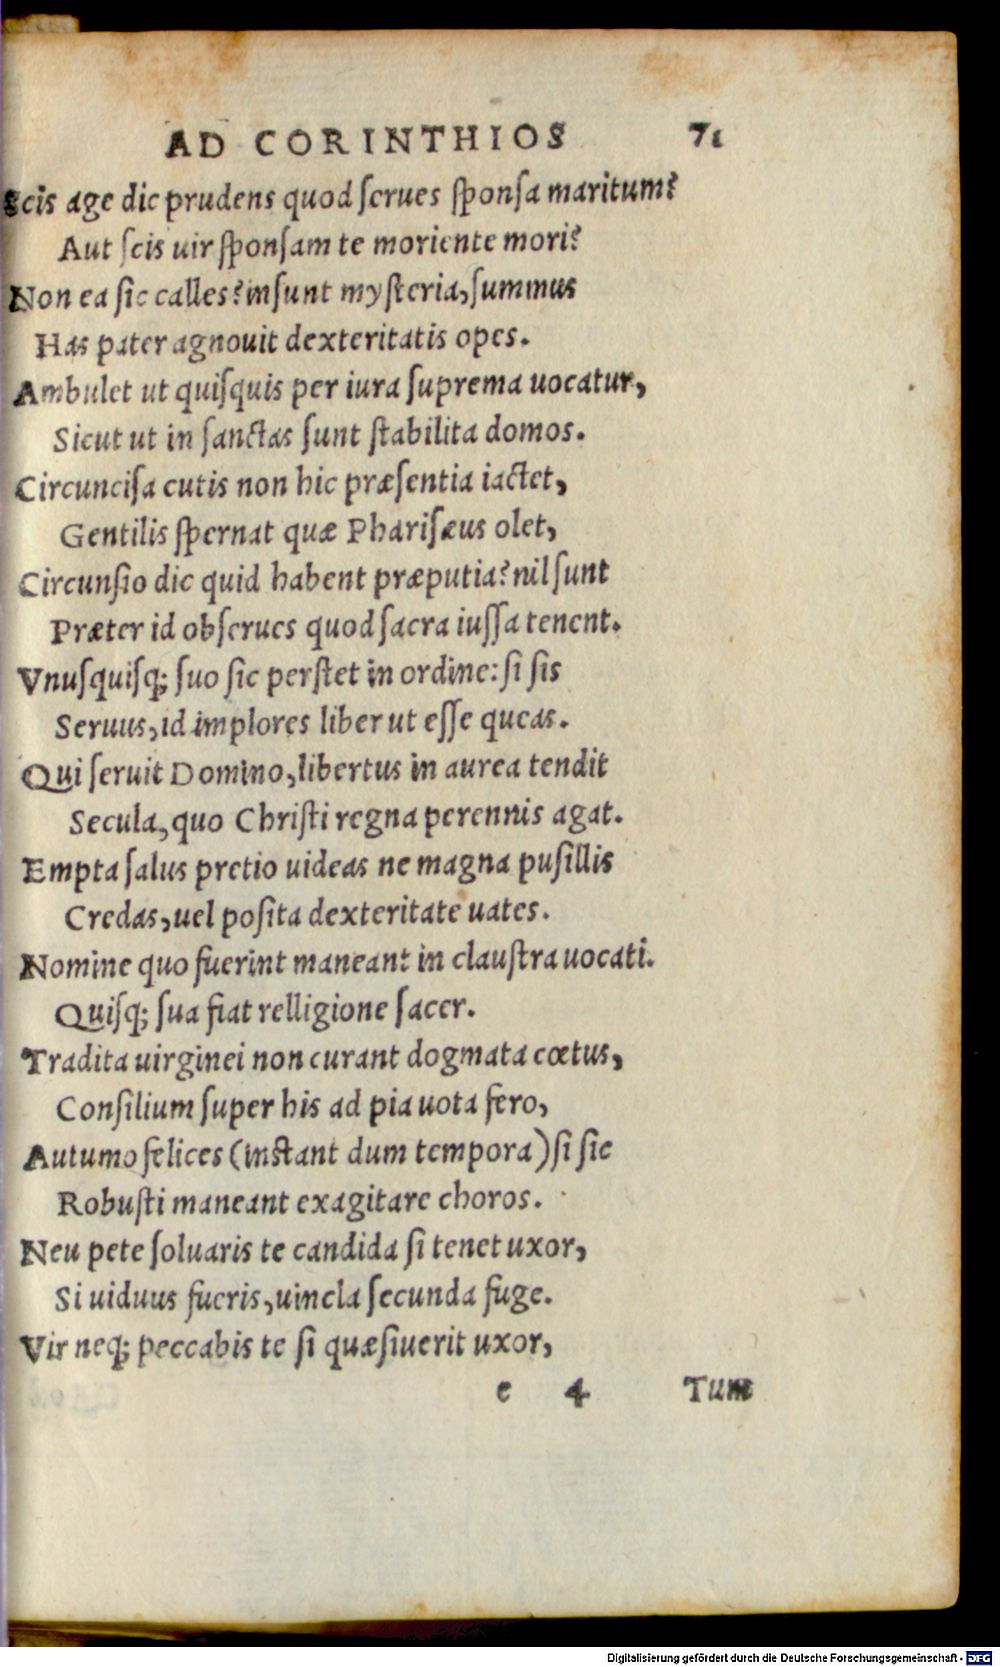 AD CORINTHIOS 71
Scis age dic prudens quod serues sponsa maritum?
Aut scis uir sponsam te moriente mori?
Non ea sic calles? insunt mysteria, summus
Has pater agnouit dexteritatis opes.
Ambulet ut quisquis per iura suprema uocatur,
Sicut ut in sanctas sunt stabilita domos.
Circuncisa cutis non hic præsentia iactet,
Gentilis spernat quæ Pharisæus olet,
Circunsio dic quid habent præputia? nil sunt
Præter id obserues quod sacra iussa tenent.
Vnusquisq; suo sic perstet in ordine: si sis
Seruus, id implores liber ut esse queas.
Qui seruit Domino, libertus in aurea tendit
Secula, quo Christi regna perennis agat.
Empta salus pretio uideas ne magna pusillis
Credas, uel posita dexteritate uates.
Nomine quo fuerint maneant in claustra uocati.
Quisq; sua fiat relligione sacer.
Tradita uirginei non curant dogmata cœtus,
Consilium super his ad pia uota fero,
Autumo felices (instant dum tempora) si sic
Robusti maneant exagitare choros.
Neu pete soluaris te candida si tenet uxor,
Si uiduus fueris, uincla secunda fuge.
Vir neq; peccabis te si quæsiuerit uxor,
e 4 Tum
Digitalisierung gefördert durch die Deutsche Forschungsgemeinschaft - DFG